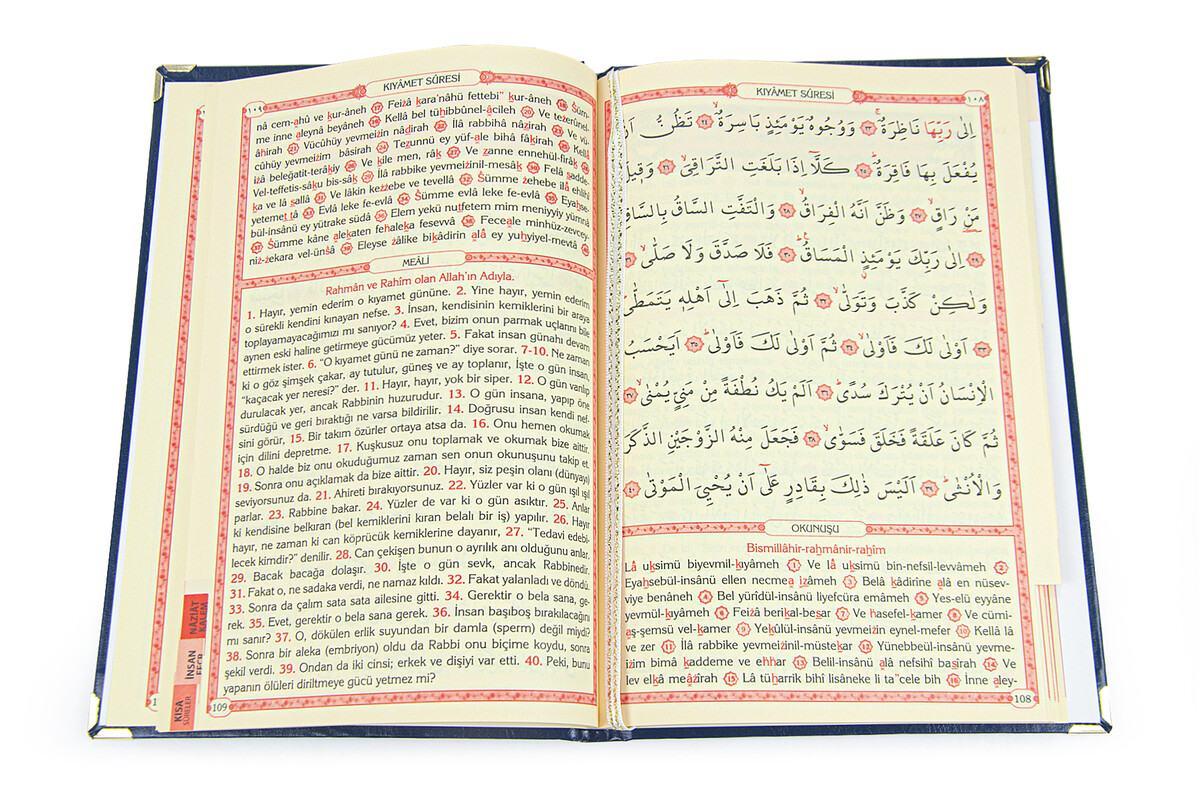 KIYÂMET SÛRESİ
١٠٨
اِلٰى رَبِّهَا نَاظِرَةٌۚ ﴿٢٣﴾ وَوُجُوهٌ يَوْمَئِذٍ بَاسِرَةٌۙ ﴿٢٤﴾ تَظُنُّ اَنْ
يُفْعَلَ بِهَا فَاقِرَةٌۜ ﴿٢٥﴾ كَلَّٓا اِذَا بَلَغَتِ التَّرَاقِيَۙ ﴿٢٦﴾ وَق۪يلَ
مَنْ رَاقٍۙ ﴿٢٧﴾ وَظَنَّ اَنَّهُ الْفِرَاقُۙ ﴿٢٨﴾ وَالْتَفَّتِ السَّاقُ بِالسَّاقِۙ
﴿٢٩﴾ اِلٰى رَبِّكَ يَوْمَئِذٍ الْمَسَاقُۜ ﴿٣٠﴾ فَلَا صَدَّقَ وَلَا صَلّٰىۙ ﴿٣١﴾
وَلٰكِنْ كَذَّبَ وَتَوَلّٰىۙ ﴿٣٢﴾ ثُمَّ ذَهَبَ اِلٰٓى اَهْلِه۪ يَتَمَطّٰىۜ
﴿٣٣﴾ اَوْلٰى لَكَ فَاَوْلٰىۙ ﴿٣٤﴾ ثُمَّ اَوْلٰى لَكَ فَاَوْلٰىۜ ﴿٣٥﴾ اَيَحْسَبُ
الْاِنْسَانُ اَنْ يُتْرَكَ سُدًىۜ ﴿٣٦﴾ اَلَمْ يَكُ نُطْفَةً مِنْ مَنِيٍّ يُمْنٰىۙ ﴿٣٧﴾
ثُمَّ كَانَ عَلَقَةً فَخَلَقَ فَسَوّٰىۙ ﴿٣٨﴾ فَجَعَلَ مِنْهُ الزَّوْجَيْنِ الذَّكَرَ
وَالْاُنْثٰىۜ ﴿٣٩﴾ اَلَيْسَ ذٰلِكَ بِقَادِرٍ عَلٰٓى اَنْ يُحْيِيَ الْمَوْتٰى ﴿٤٠﴾
OKUNUŞU
Bismillâhir-rahmânir-rahîm
Lâ uksimü biyevmil-kıyâmeh 1 Ve lâ uksimü bin-nefsil-levvâmeh 2
Eyahsebül-insânü ellen necmea izâmeh 3 Belâ kâdirîne alâ en nüsev-
viye benâneh 4 Bel yürîdül-insânü liyefcüra emâmeh 5 Yes-elü eyyâne
yevmül-kıyâmeh 6 Feizâ berikal-besar 7 Ve hasefel-kamer 8 Ve cümi-
aş-şemsü vel-kamer 9 Yekûlül-insânü yevmeizin eynel-mefer 10 Kellâ lâ
ve zer 11 İlâ rabbike yevmeizinil-müstekar 12 Yünebbeül-insânü yevme-
izim bimâ kaddeme ve ehhar 13 Belil-insânü alâ nefsihî basîrah 14 Ve
lev elkâ meâzîrah 15 Lâ tüharrik bihî lisâneke li ta"cele bih 16 İnne aley-
108
KIYÂMET SÛRESİ
١٠٩
nâ cem-ahû ve kur-âneh 17 Feizâ kara'nâhü fettebi" kur-âneh 18 Süm-
me inne aleynâ beyâneh 19 Kellâ bel tühibbûnel-âcileh 20 Ve tezerûnel-
âhirah 21 Vücûhüy yevmeizin nâdirah 22 İlâ rabbihâ nâzirah 23 Ve vü-
cûhüy yevmeizim bâsirah 24 Tezunnü ey yüf-ale bihâ fâkirah 25 Kellâ
izâ beleğatit-terâkiy 26 Ve kîle men, râk 27 Ve zanne ennehül-firâk 28
Vel-teffetis-sâku bis-sâk 29 İlâ rabbike yevmeizinil-mesâk 30 Felâ sadde-
ka ve lâ sallâ 31 Ve lâkin kezzebe ve tevellâ 32 Sümme zehebe ilâ ehlihî
yetemettâ 33 Evlâ leke fe-evlâ 34 Sümme evlâ leke fe-evlâ 35 Eyahse-
bül-insânü ey yütrake südâ 36 Elem yekü nutfetem mim meniyyiy yümnâ
37 Sümme kâne alekaten fehaleka fesevvâ 38 Feceale minhüz-zevcey-
niz-zekara vel-ünsâ 39 Eleyse zâlike bikâdirin alâ ey yuhyiyel-mevtâ 40
MEÂLİ
Rahmân ve Rahîm olan Allah'ın Adıyla.
1. Hayır, yemin ederim o kıyamet gününe. 2. Yine hayır, yemin ederim
o sürekli kendini kınayan nefse. 3. İnsan, kendisinin kemiklerini bir araya
toplayamayacağımızı mı sanıyor? 4. Evet, bizim onun parmak uçlarını bile
aynen eski haline getirmeye gücümüz yeter. 5. Fakat insan günahı devam
ettirmek ister. 6. "O kıyamet günü ne zaman?" diye sorar. 7-10. Ne zaman
ki o göz şimşek çakar, ay tutulur, güneş ve ay toplanır, İşte o gün insan,
"kaçacak yer neresi?" der. 11. Hayır, hayır, yok bir siper. 12. O gün varılıp
durulacak yer, ancak Rabbinin huzurudur. 13. O gün insana, yapıp öne
sürdüğü ve geri bıraktığı ne varsa bildirilir. 14. Doğrusu insan kendi nef-
sini görür, 15. Bir takım özürler ortaya atsa da. 16. Onu hemen okumak
için dilini depretme. 17. Kuşkusuz onu toplamak ve okumak bize aittir.
18. O halde biz onu okuduğumuz zaman sen onun okunuşunu takip et.
19. Sonra onu açıklamak da bize aittir. 20. Hayır, siz peşin olanı (dünyayı)
seviyorsunuz da. 21. Ahireti bırakıyorsunuz. 22. Yüzler var ki o gün ışıl ışıl
parlar. 23. Rabbine bakar. 24. Yüzler de var ki o gün asıktır. 25. Anlar
ki kendisine belkıran (bel kemiklerini kıran belalı bir iş) yapılır. 26. Hayır
hayır, ne zaman ki can köprücük kemiklerine dayanır, 27. "Tedavi edebi-
lecek kimdir?" denilir. 28. Can çekişen bunun o ayrılık anı olduğunu anlar.
29. Bacak bacağa dolaşır. 30. İşte o gün sevk, ancak Rabbinedir.
31. Fakat o, ne sadaka verdi, ne namaz kıldı. 32. Fakat yalanladı ve döndü.
33. Sonra da çalım sata sata ailesine gitti. 34. Gerektir o bela sana, ge-
rek. 35. Evet, gerektir o bela sana gerek. 36. İnsan başıboş bırakılacağını
mı sanır? 37. O, dökülen erlik suyundan bir damla (sperm) değil miydi?
38. Sonra bir aleka (embriyo) oldu da Rabbi onu biçime koydu, sonra
şekil verdi. 39. Ondan da iki cinsi; erkek ve dişiyi var etti. 40. Peki, bunu
yapanın ölüleri diriltmeye gücü yetmez mi?
109
NÂZİÂT
KALEM
İNSAN
FECR
KISA
SÛRELER